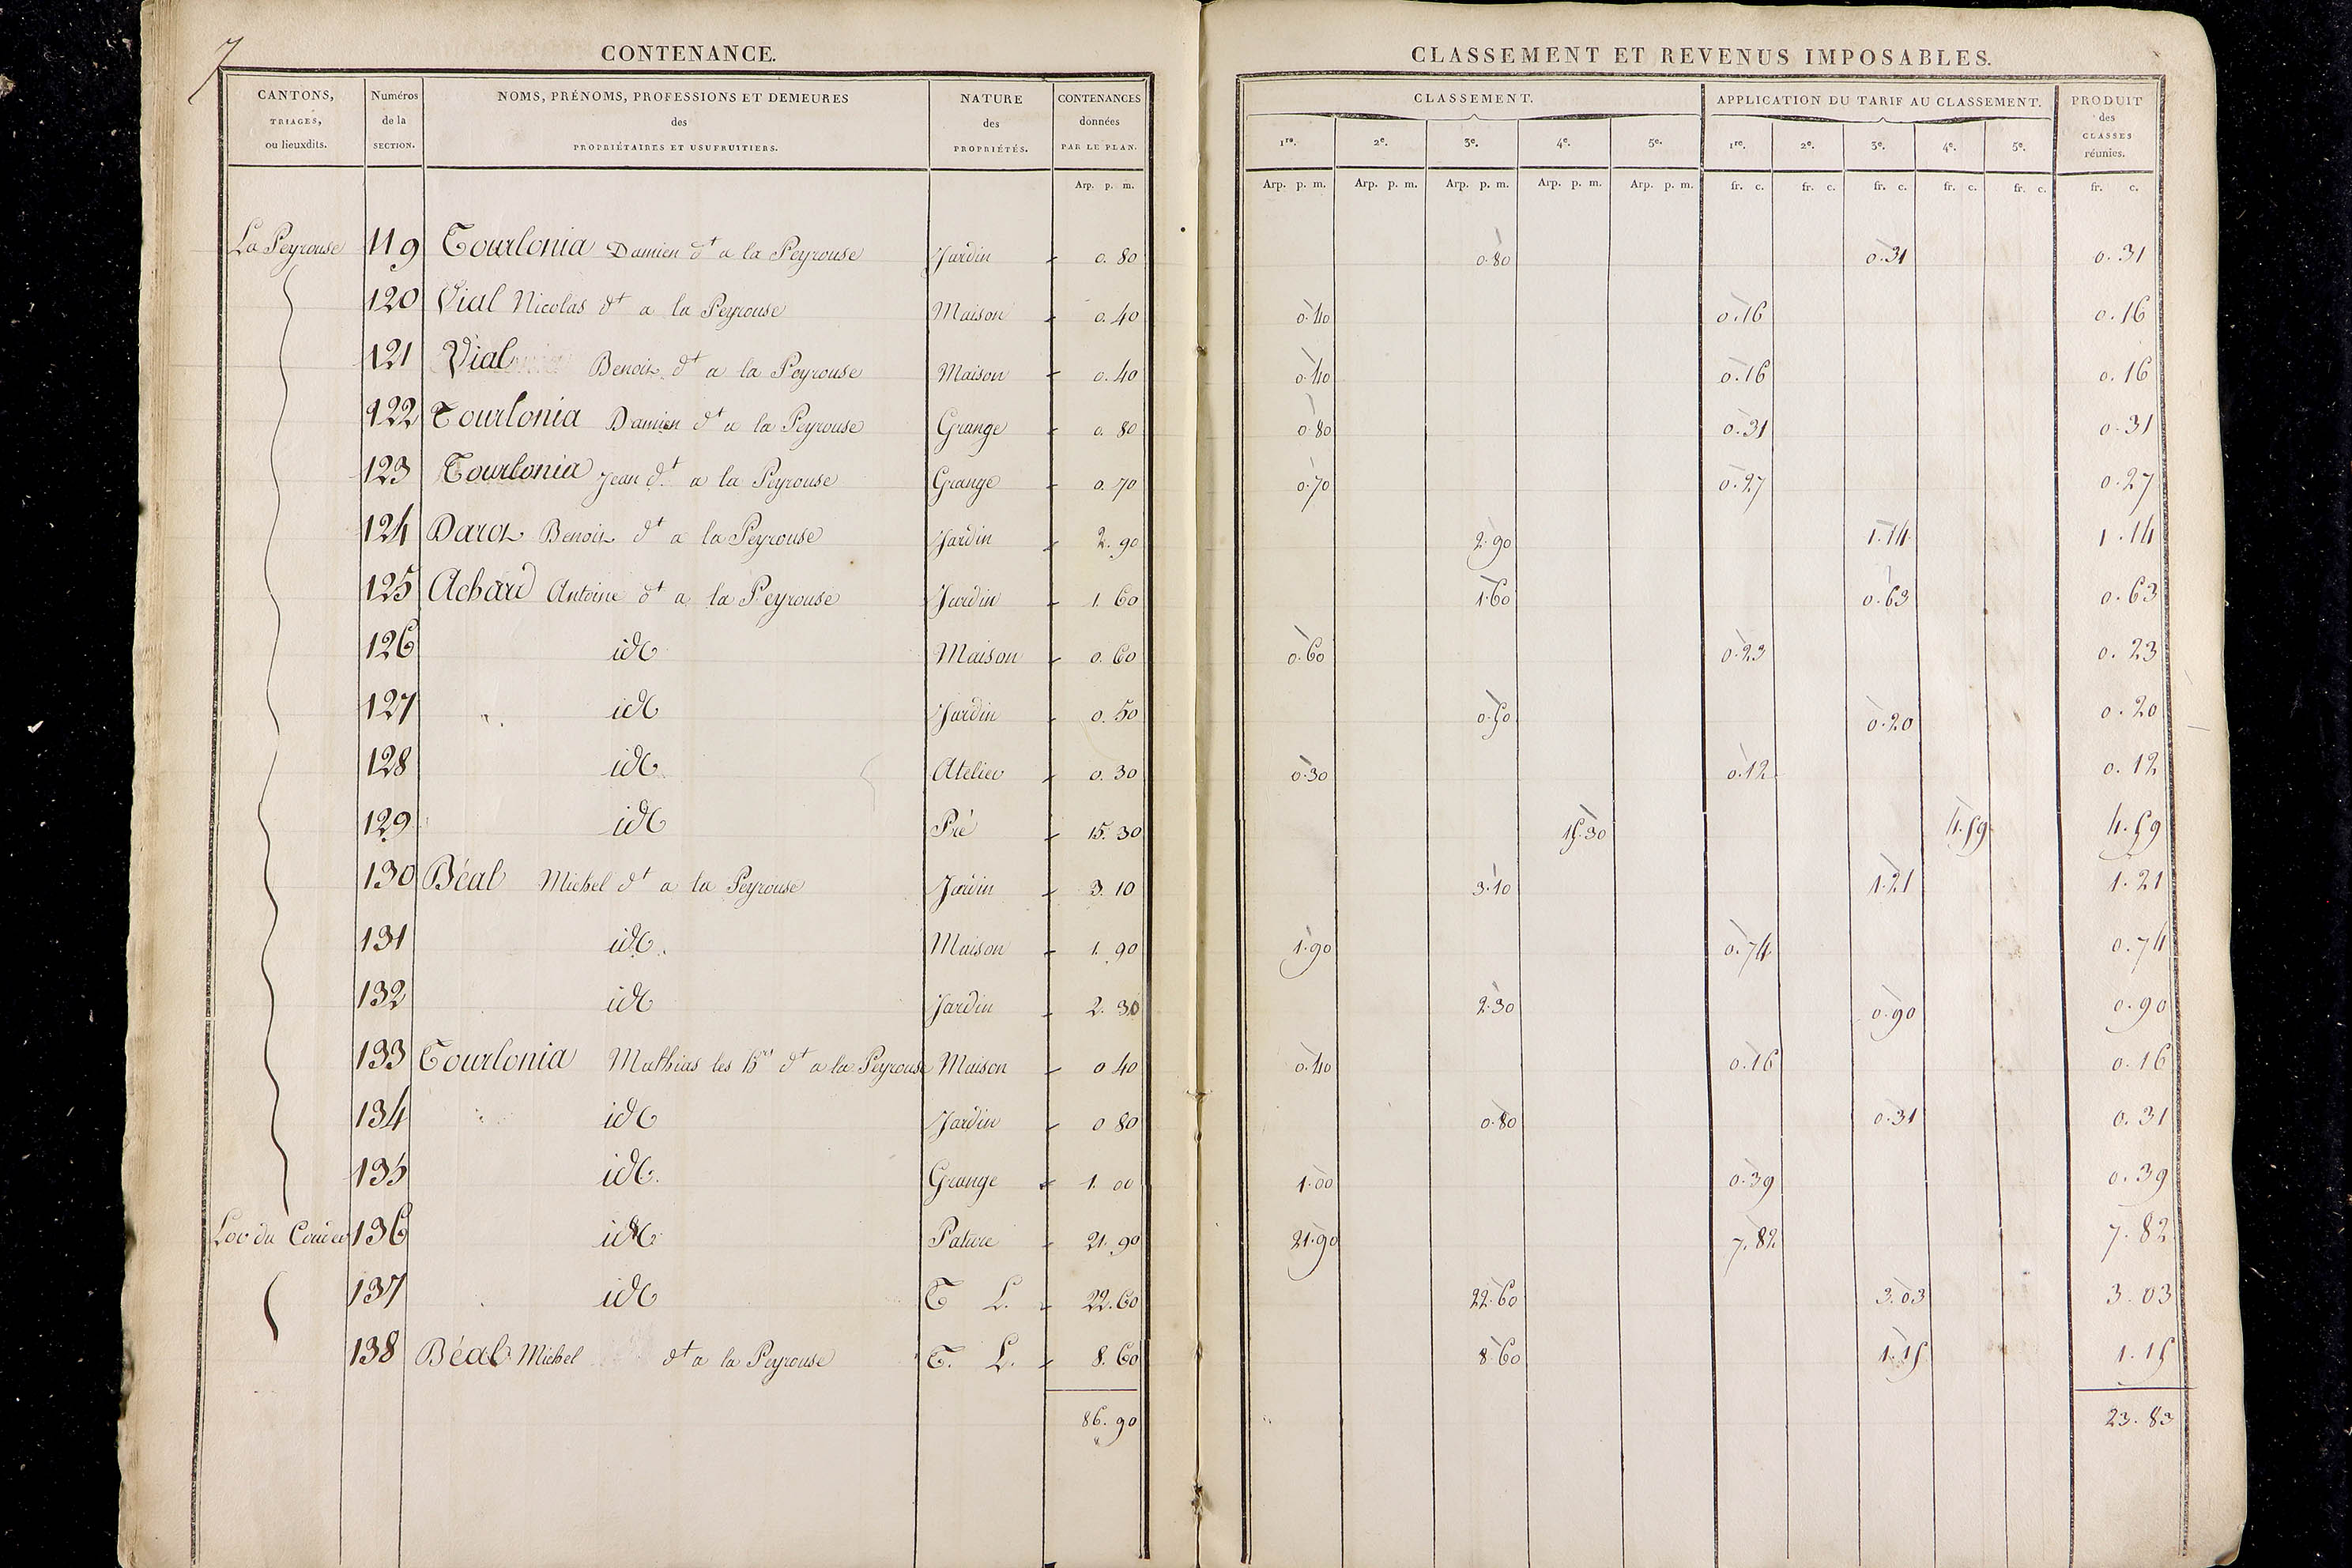 7
CONTENANCE.
CANTONS, TRIAGES, ou lieuxdits. Numéros de la SECTION. NOMS, PRÉNOMS, PROFESSIONS ET DEMEURES des PROPRIÉTAIRES ET USUFRUITIERS. NATURE des PROPRIÉTÉS. CONTENANCES données PAR LE PLAN.
Arp. p. m.
CLASSEMENT ET REVENUS IMPOSABLES.
CLASSEMENT. APPLICATION DU TARIF AU CLASSEMENT. PRODUIT des CLASSES réunies.
1re. 2e. 3e. 4e. 5e. 1re. 2e. 3e. 4e. 5e.
Arp. p. m. Arp. p. m. Arp. p. m. Arp. p. m. Arp. p. m. fr. c. fr. c. fr. c. fr. c. fr. c. fr. c.
La Peyrouse 119 Tourlonia Damien dt a la Peyrouse Jardin 0.80 0.80 0.31 0.31
120 Vial Nicolas dt a la Peyrouse Maison 0.40 0.40 0.16 0.16
121 Vial Benoit dt a la Peyrouse Maison 0.40 0.40 0.16 0.16
122 Tourlonia Damien dt a la Peyrouse Grange 0.80 0.80 0.31 0.31
123 Tourlonia Jean dt a la Peyrouse Grange 0.70 0.70 0.27 0.27
124 Darot Benoit dt a la Peyrouse Jardin 2.90 2.90 1.14 1.14
125 Achard Antoine dt a la Peyrouse Jardin 1.60 1.60 0.63 0.63
126 id Maison 0.60 0.60 0.23 0.23
127 id Jardin 0.50 0.50 0.20 0.20
128 id Atelier 0.30 0.30 0.12 0.12
129 id Pré 15.30 15.30 4.59 4.59
130 Béal Michel dt a la Peyrouse Jardin 3.10 3.10 1.21 1.21
131 id Maison 1.90 1.90 0.74 0.74
132 id Jardin 2.30 2.30 0.90 0.90
133 Tourlonia Mathias les dt a la Peyrouse Maison 0 40 0.40 0.16 0.16
134 id Jardin 0 80 0.80 0.31 0.31
135 id Grange 1.00 1.00 0.39 0.39
du 136 id Pature 21.90 21.90 7.82 7.82
137 id T L. 22.60 22.60 3.03 3.03
138 Béal Michel dt a la Peyrouse T. L. 8.60 8.60 1.15 1.15
86.90 23.83